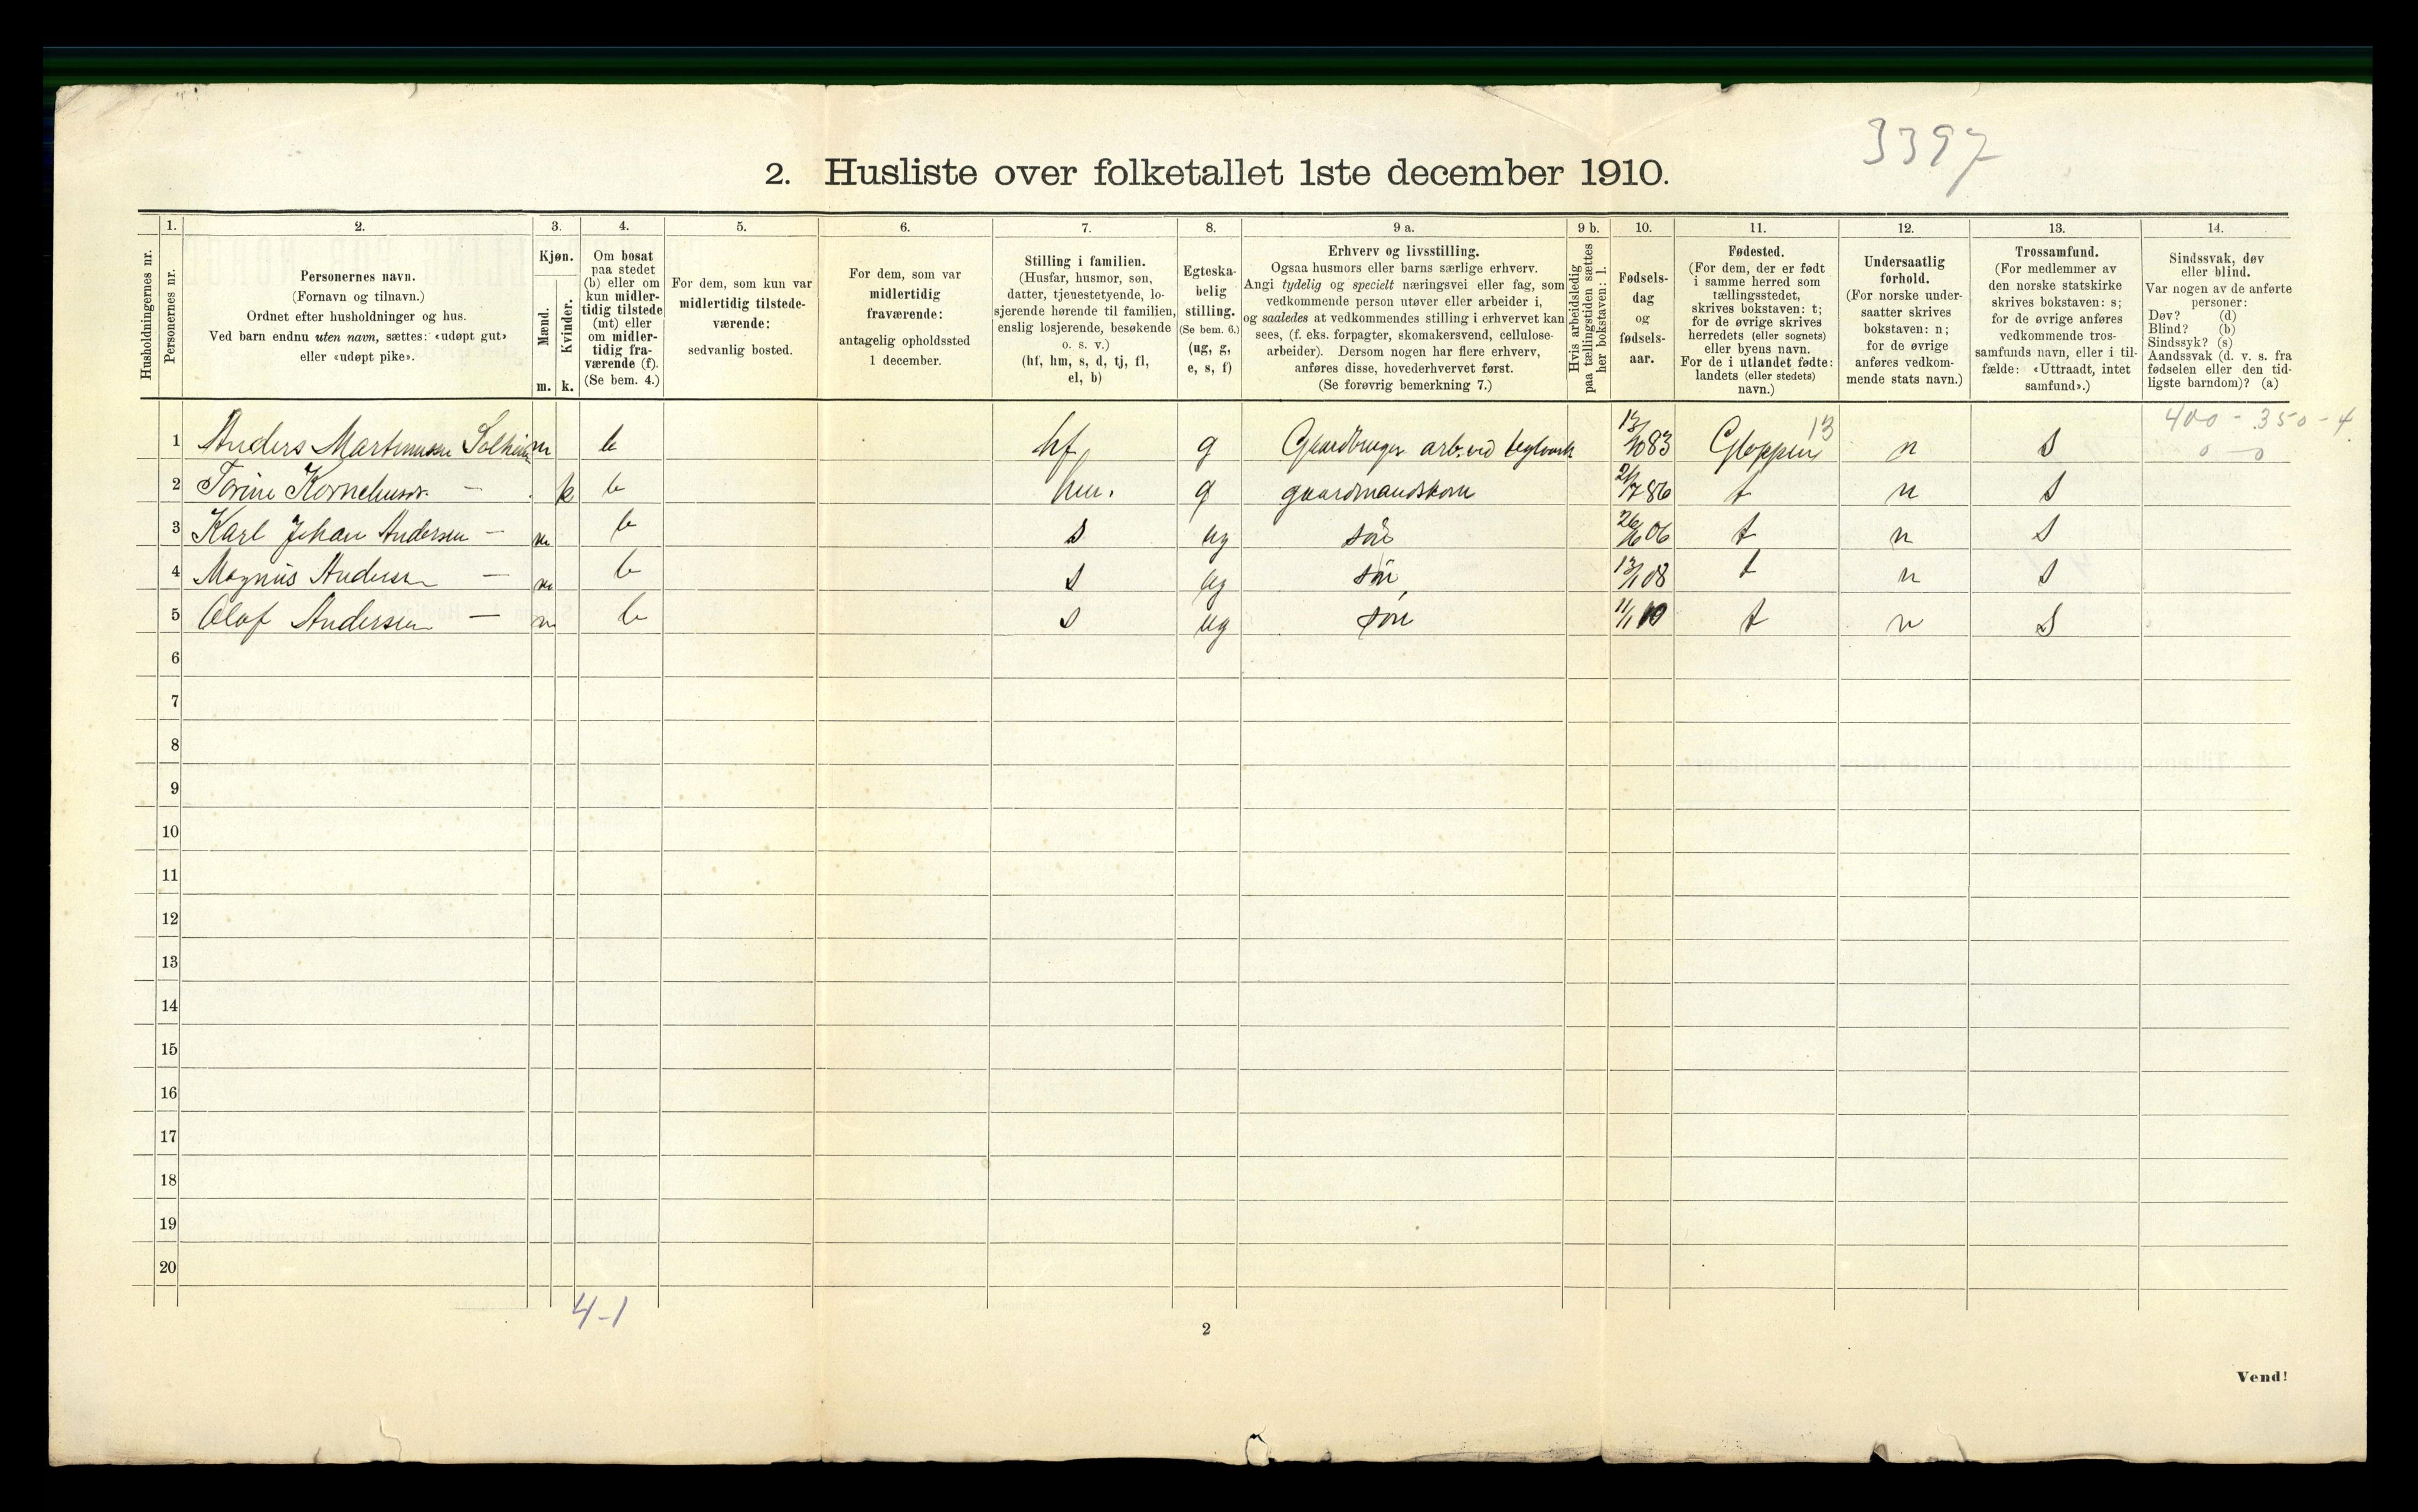 3397
2. Husliste over folketallet 1ste december 1910.
Husholdningernes nr.
1.
Personernes nr.
2.
Personernes navn.
(Fornavn og tilnavn.)
Ordnet efter husholdninger og hus.
Ved barn endnu uten navn, sættes: «udøpt gut»
eller «udøpt pike».
3.
Kjøn.
Mænd.
Kvinder.
m. k.
4.
Om bosat
paa stedet
(b) eller om
kun midler-
tidig tilstede
(mt) eller
om midler-
tidig fra-
værende (f).
(Se bem. 4.)
5.
For dem, som kun var
midlertidig tilstede-
værende:
sedvanlig bosted.
6.
For dem, som var
midlertidig
fraværende:
antagelig opholdssted
1 december.
7.
Stilling i familien.
(Husfar, husmor, søn,
datter, tjenestetyende, lo-
sjerende hørende til familien,
enslig losjerende, besøkende
o. s. v.)
(hf, hm, s, d, tj, fl,
el, b)
8.
Egteska-
belig
stilling.
(Se bem. 6.)
(ug, g,
e, s, f)
9 a.
Erhverv og livsstilling.
Ogsaa husmors eller barns særlige erhverv.
Angi tydelig og specielt næringsvei eller fag, som
vedkommende person utøver eller arbeider i,
og saaledes at vedkommendes stilling i erhvervet kan
sees, (f. eks. forpagter, skomakersvend, cellulose-
arbeider). Dersom nogen har flere erhverv,
anføres disse, hovederhvervet først.
(Se forøvrig bemerkning 7.)
9 b.
Hvis arbeidsledig
paa tællingstiden sættes
her bokstaven: l.
10.
Fødsels-
dag
og
fødsels-
aar.
11.
Fødested.
(For dem, der er født
i samme herred som
tællingsstedet,
skrives bokstaven: t;
for de øvrige skrives
herredets (eller sognets)
eller byens navn.
For de i utlandet fødte:
landets (eller stedets)
navn.)
12.
Undersaatlig
forhold.
(For norske under-
saatter skrives
bokstaven: n;
for de øvrige
anføres vedkom-
mende stats navn.)
13.
Trossamfund.
(For medlemmer av
den norske statskirke
skrives bokstaven: s;
for de øvrige anføres
vedkommende tros-
samfunds navn, eller i til-
fælde: «Uttraadt, intet
samfund».)
14.
Sindssvak, døv
eller blind.
Var nogen av de anførte
personer:
Døv? (d)
Blind? (b)
Sindssyk? (s)
Aandssvak (d. v. s. fra
fødselen eller den tid-
ligste barndom)? (a)
400 - 350 - 4
0 - 0
1 Anders Martinussen Solheim m b hf g Gaardbruger arb. ved teglverk 13/10 83 Gloppen 13 n s
2 Torine Korneliusdr. — k b hm. g gaardmandskone 7 86 t n s
3 Karl Johan Andersen — m b s ug søn 26/6 06 t n s
4 Magnus Andersen — m b s ug søn 13/1 08 t n s
5 Olaf Andersen — m b s ug søn 11/1 10 t n s
6
7
8
9
10
11
12
13
14
15
16
17
18
19
20
4-1
2
Vend!